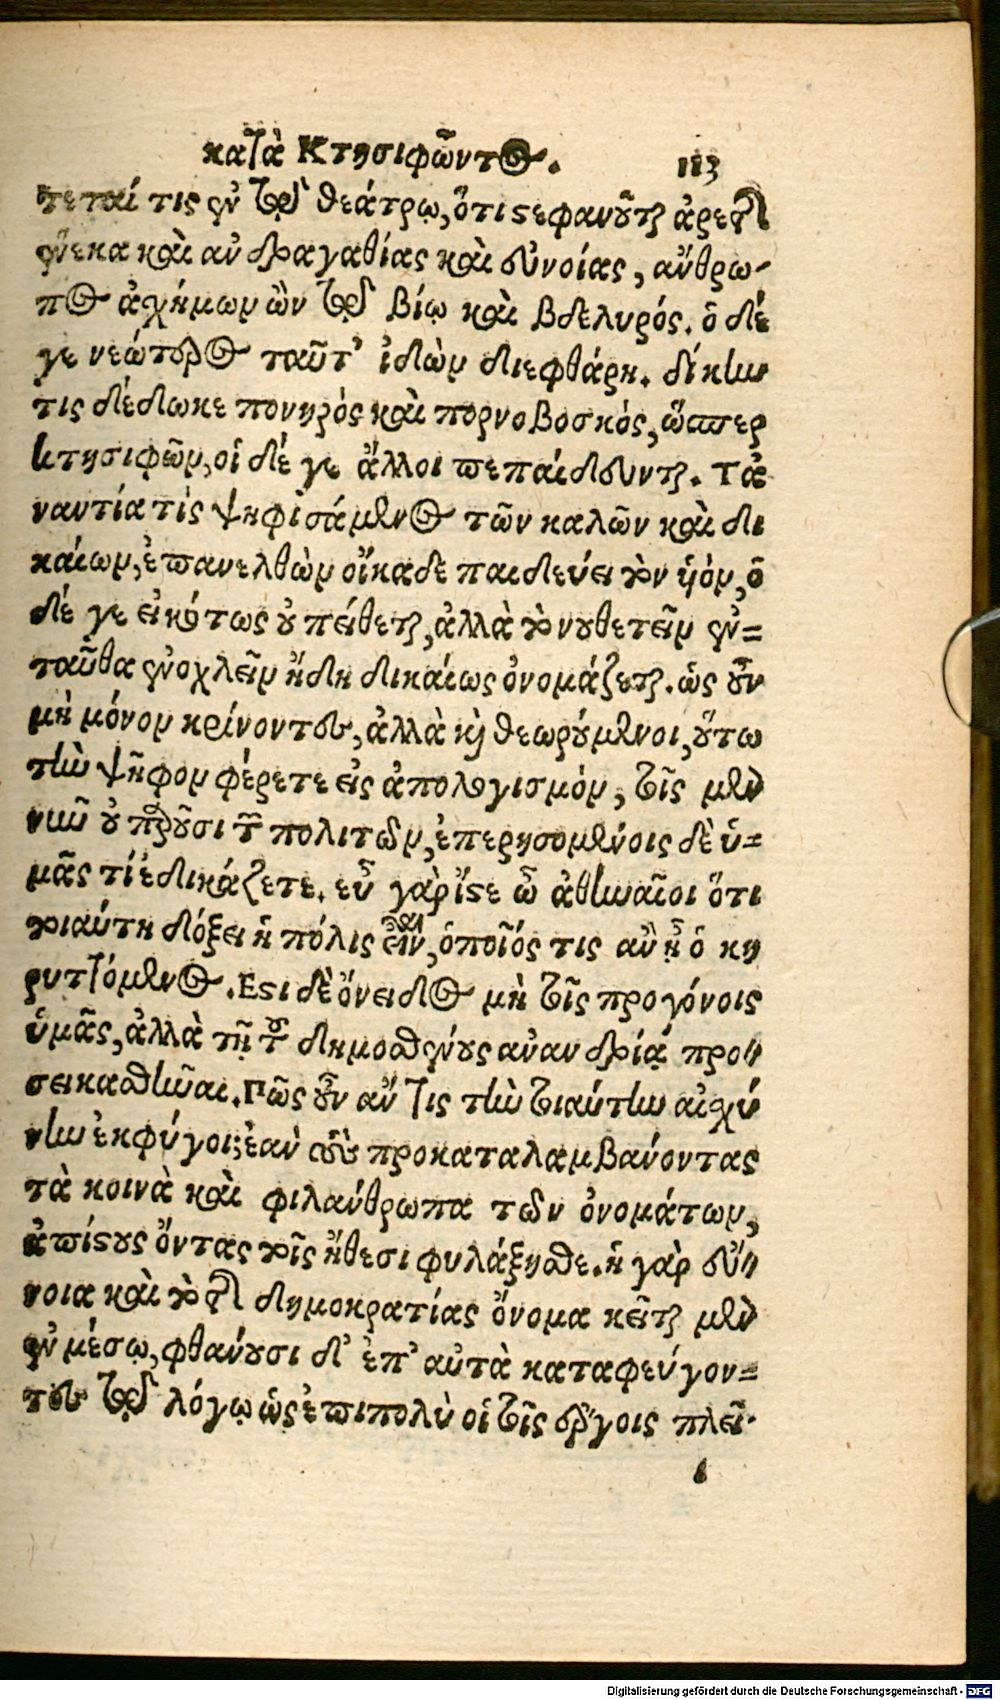 κατὰ Κτησιφῶντος. 113
τεταί τις ἐν τῷ θεάτρῳ, ὅτι στεφανοῦται ἀρετῆς
ἕνεκα καὶ ἀνδραγαθίας καὶ εὐνοίας, ἄνθρω-
πος ἀσχήμων ὢν τῷ βίῳ καὶ βδελυρός. ὁ δέ
γε νεώτερος ταῦτ' ἰδὼν διεφθάρη. δίκην
τις δέδωκε πονηρὸς καὶ πορνοβοσκός, ὥσπερ
κτησιφῶν, οἱ δέ γε ἄλλοι πεπαίδευνται. Τἀ
ναντία τὶς ψηφισάμενος τῶν καλῶν καὶ δι
καίων, ἐπανελθὼν οἴκαδε παιδεύει τὸν ὑόν, ὁ
δέ γε εἰκότως οὐ πείθεται, ἀλλὰ τὸ νουθετεῖν ἐν-
ταῦθα ἐνοχλεῖν ἤδη δικαίως ὀνομάζεται. ὡς οὖν
μὴ μόνον κρίνοντες, ἀλλὰ καὶ θεωρούμενοι, οὕτω
τὴν ψῆφον φέρετε εἰς ἀπολογισμόν, τοῖς μὲν
νῦν οὐ παροῦσι τῶν πολιτῶν, ἐπερησομένοις δὲ ὑ-
μᾶς τί ἐδικάζετε. εὖ γὰρ ἴστε ὦ ἀθηναῖοι ὅτι
τοιαύτη δόξει ἡ πόλις εἶναι, ὁποῖός τις ἂν ᾖ ὁ κη
ρυττόμενος. Εστι δὲ ὄνειδος μὴ τοῖς προγόνοις
ὑμᾶς, ἀλλὰ τῇ τοῦ δημοσθένους ἀνανδρίᾳ προσ-
σεικασθῆναι. Πῶς οὖν ἄν τις τὴν τοιαύτην αἰσχύ
νην ἐκφύγοι; ἐὰν τοὺς προκαταλαμβάνοντας
τὰ κοινὰ καὶ φιλάνθρωπα τῶν ὀνομάτων,
ἀπίστους ὄντας τοῖς ἤθεσι φυλάξησθε. ἡ γὰρ εὔ-
νοια καὶ τὸ τῆς δημοκρατίας ὄνομα κεῖται μὲν
ἐν μέσῳ, φθάνουσι δ' ἐπ' αὐτὰ καταφεύγον-
τες τῷ λόγῳ ὡς ἐπιπολὺ οἱ τοῖς ἔργοις πλεῖ-